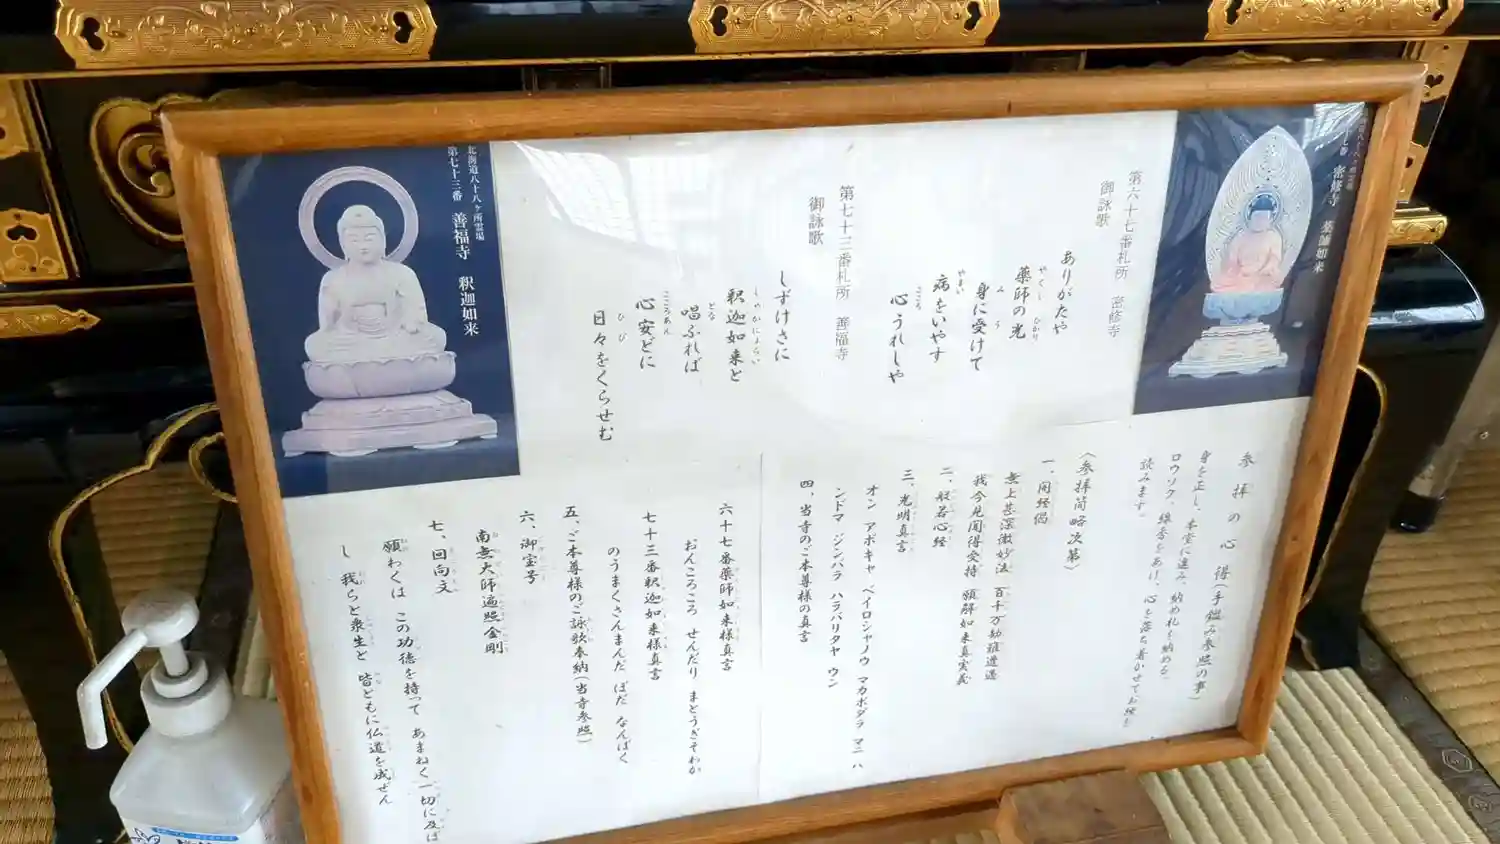 北海道八十八ヶ所霊場
第六十七番 密修寺 薬師如来
第六十七番札所 密修寺
御詠歌
ありがたや
薬師の光
身に受けて
病をいやす
心うれしや
第七十三番札所 善福寺
御詠歌
しずけさに
釈迦如来と
唱ふれば
心安どに
日々をくらせむ
北海道八十八ヶ所霊場
第七十三番 善福寺 釈迦如来
参拝の心得(手鑑み参照の事)
身を正し、本堂に進み、納め札を納める。
ロウソク、線香をあげ、心を落ち着かせてお経を
読みます。
〈参拝簡略次第〉
一、開経偈
無上甚深微妙法 百千万劫難遭遇
我今見聞得受持 願解如来真実義
二、般若心経
三、光明真言
オン アボキャ ベイロシャノウ マカボダラ マニ ハ
ンドマ ジンバラ ハラバリタヤ ウン
四、当寺のご本尊様の真言
六十七番薬師如来様真言
おんころころ せんだり まとうぎそわか
七十三番釈迦如来様真言
のうまくさんまんだ ぼだ なんばく
五、ご本尊様のご詠歌奉納(当寺参照)
六、御宝号
南無大師遍照金剛
七、回向文
願わくは この功徳を持って あまねく一切に及ぼ
し 我らと衆生と 皆ともに仏道を成ぜん